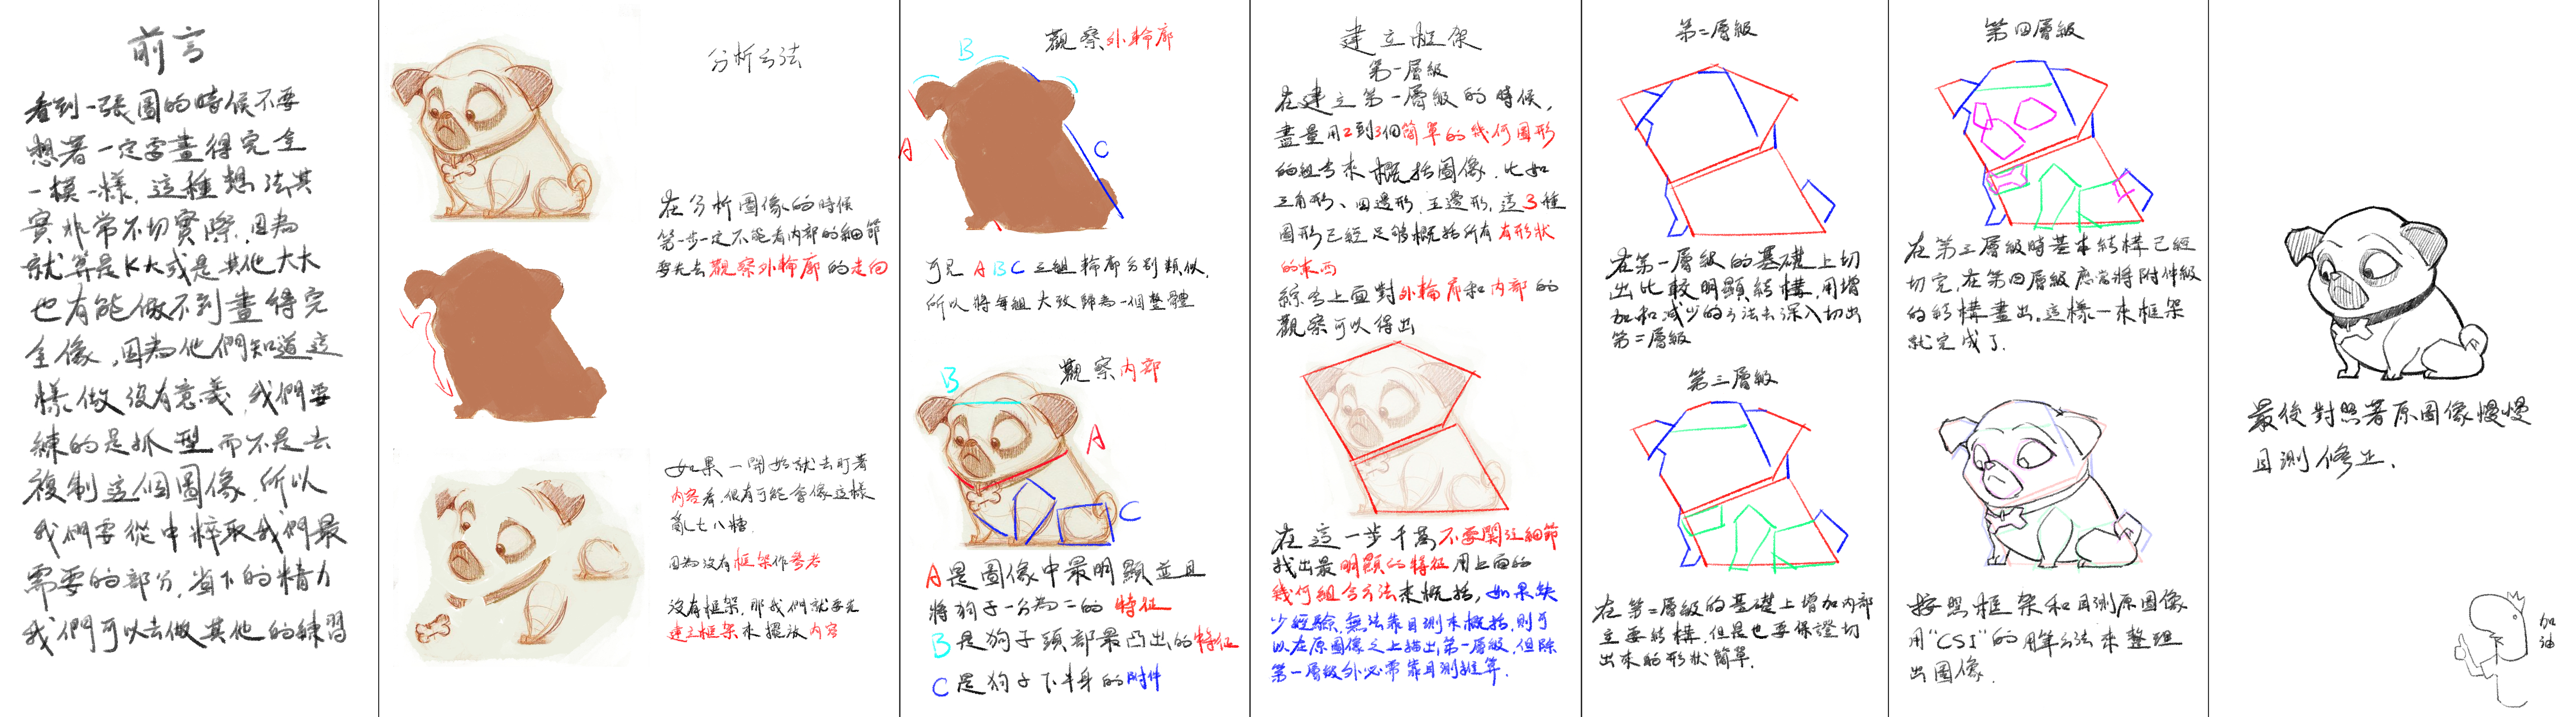 前言
看到一張圖的時候不要
想著一定要畫得完全
一模一樣，這種想法其
實非常不切實際，因為
就算是K大或是其他大大
也有能做不到畫得完
全像，因為他們知道這
樣做沒有意義，我們要
練的是抓型而不是去
複制這個圖像，所以
我們要從中粹取我們最
需要的部分，省下的精力
我們可以去做其他的練習
分析方法
在分析圖像的時候
第一步一定不能看內部的細節
要先去觀察外輪廓的走向
如果一開始就去盯著
內容看，很有可能會像這樣
亂七八糟
因為沒有框架作參考
沒有框架，那我們就要先
建立框架來擺放內容
觀察外輪廓
B
A
C
可見ABC三組輪廓分別類似，
所以將每組大致歸為一個整體
觀察內部
B
A
C
A是圖像中最明顯並且
將狗子一分為二的特征
B是狗子頭部最凸出的特征
C是狗子下半身的附件
建立框架
第一層級
在建立第一層級的時候，
盡量用2到3個簡單的幾何圖形
的組合來概括圖像，比如
三角形、四邊形、五邊形，這3種
圖形已經足够概括所有有形狀
的東西
綜合上面對外輪廓和內部的
觀察可以得出
在這一步千萬不要關注細節
找出最明顯的特征用上面的
幾何組合方法來概括，如果缺
少經驗，無法靠目測來概括，則可
以在原圖像之上描出第一層級，但除
第一層級外必需靠目測推算．
第二層級
在第一層級的基礎上切
出比較明顯結構，用增
加和减少的方法去深入切出
第二層級
第三層級
在第二層級的基礎上增加內部
主要結構，但是也要保證切
出來的形狀簡單．
第四層級
在第三層級時基本結構已經
切完，在第四層級應當將附件級
的結構畫出，這樣一來框架
就完成了．
按照框架和目測原圖像
用"CSI"的用筆方法來整理
出圖像．
最後對照著原圖像慢慢
目測修正．
加
油